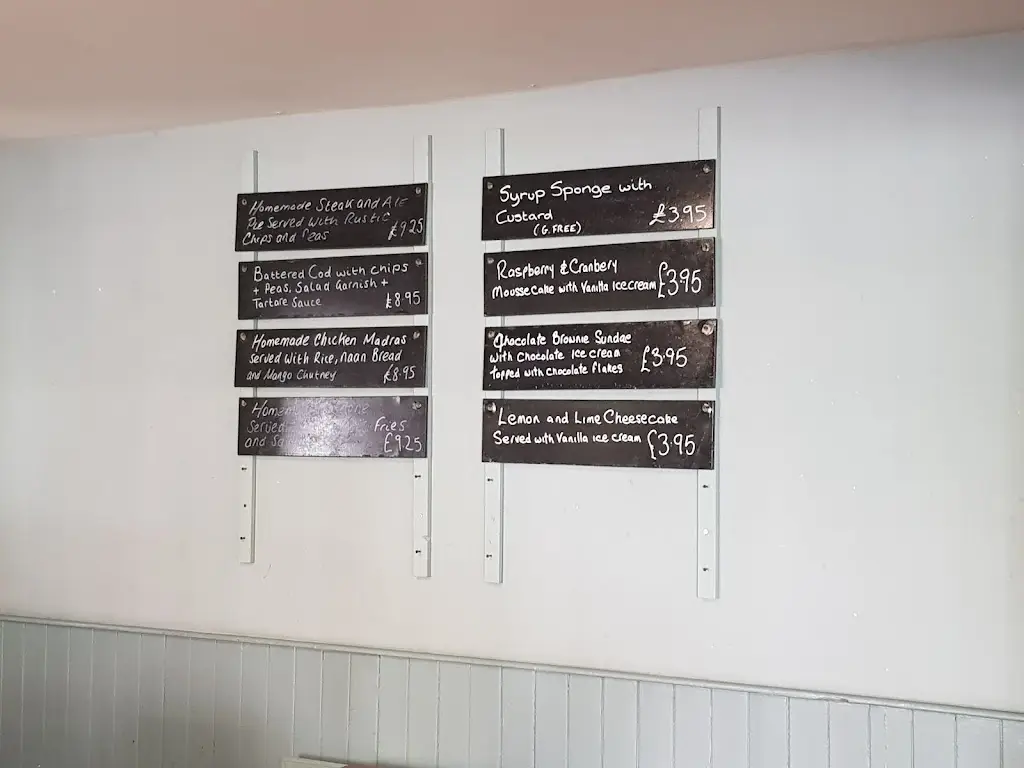 Homemade Steak and Ale
Pie Served With Rustic
Chips and Peas £9.25
Battered Cod with chips
+ Peas, Salad Garnish +
Tartare Sauce £8.95
Homemade Chicken Madras
Served with Rice, naan Bread
and Mango Chutney £8.95
Served Fries
and £9.25
Syrup Sponge with
Custard £3.95
(G.FREE)
Raspberry & Cranbery
Mousse Cake with Vanilla Ice cream £3.95
Chocolate Brownie Sundae
with Chocolate Ice cream
topped with chocolate flakes £3.95
Lemon and Lime Cheesecake
Served with Vanilla ice cream £3.95